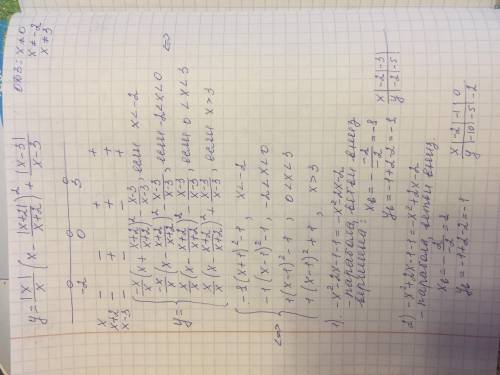 y = |x|/x (x - |x+2|/(x+2))² + |x-3|/(x-3)
ОДЗ: x≠0
x≠-2
x≠3
-2 0 3
x - - + +
x+2 - + + +
x-3 - - - +
y = { -x/x (x + (x+2)/(x+2))² - (x-3)/(x-3), если x < -2
-x/x (x - (x+2)/(x+2))² - (x-3)/(x-3), если -2<x<0
x/x (x - (x+2)/(x+2))² - (x-3)/(x-3), если 0<x<3
x/x (x - (x+2)/(x+2))² + (x-3)/(x-3), если x>3
⇔
⇔ { -1(x+1)²-1, x<-2
-1(x-1)²-1, -2<x<0
1(x-1)²-1, 0<x<3
1(x-1)²+1, x>3
1) -x²-2x-1-1 = -x²-2x-2
- парабола, ветви вниз
вершина:
xв = - -2/-2 = -1
yв = -1+2-2 = -1
x | -2 | -3
y | -2 | -5
2) -x²+2x-1-1 = -x²+2x-2
- парабола, ветви вниз.
yв = -1+2-2 = -1
x | -2 | -1 | 0
y | -10 | -5 | -2